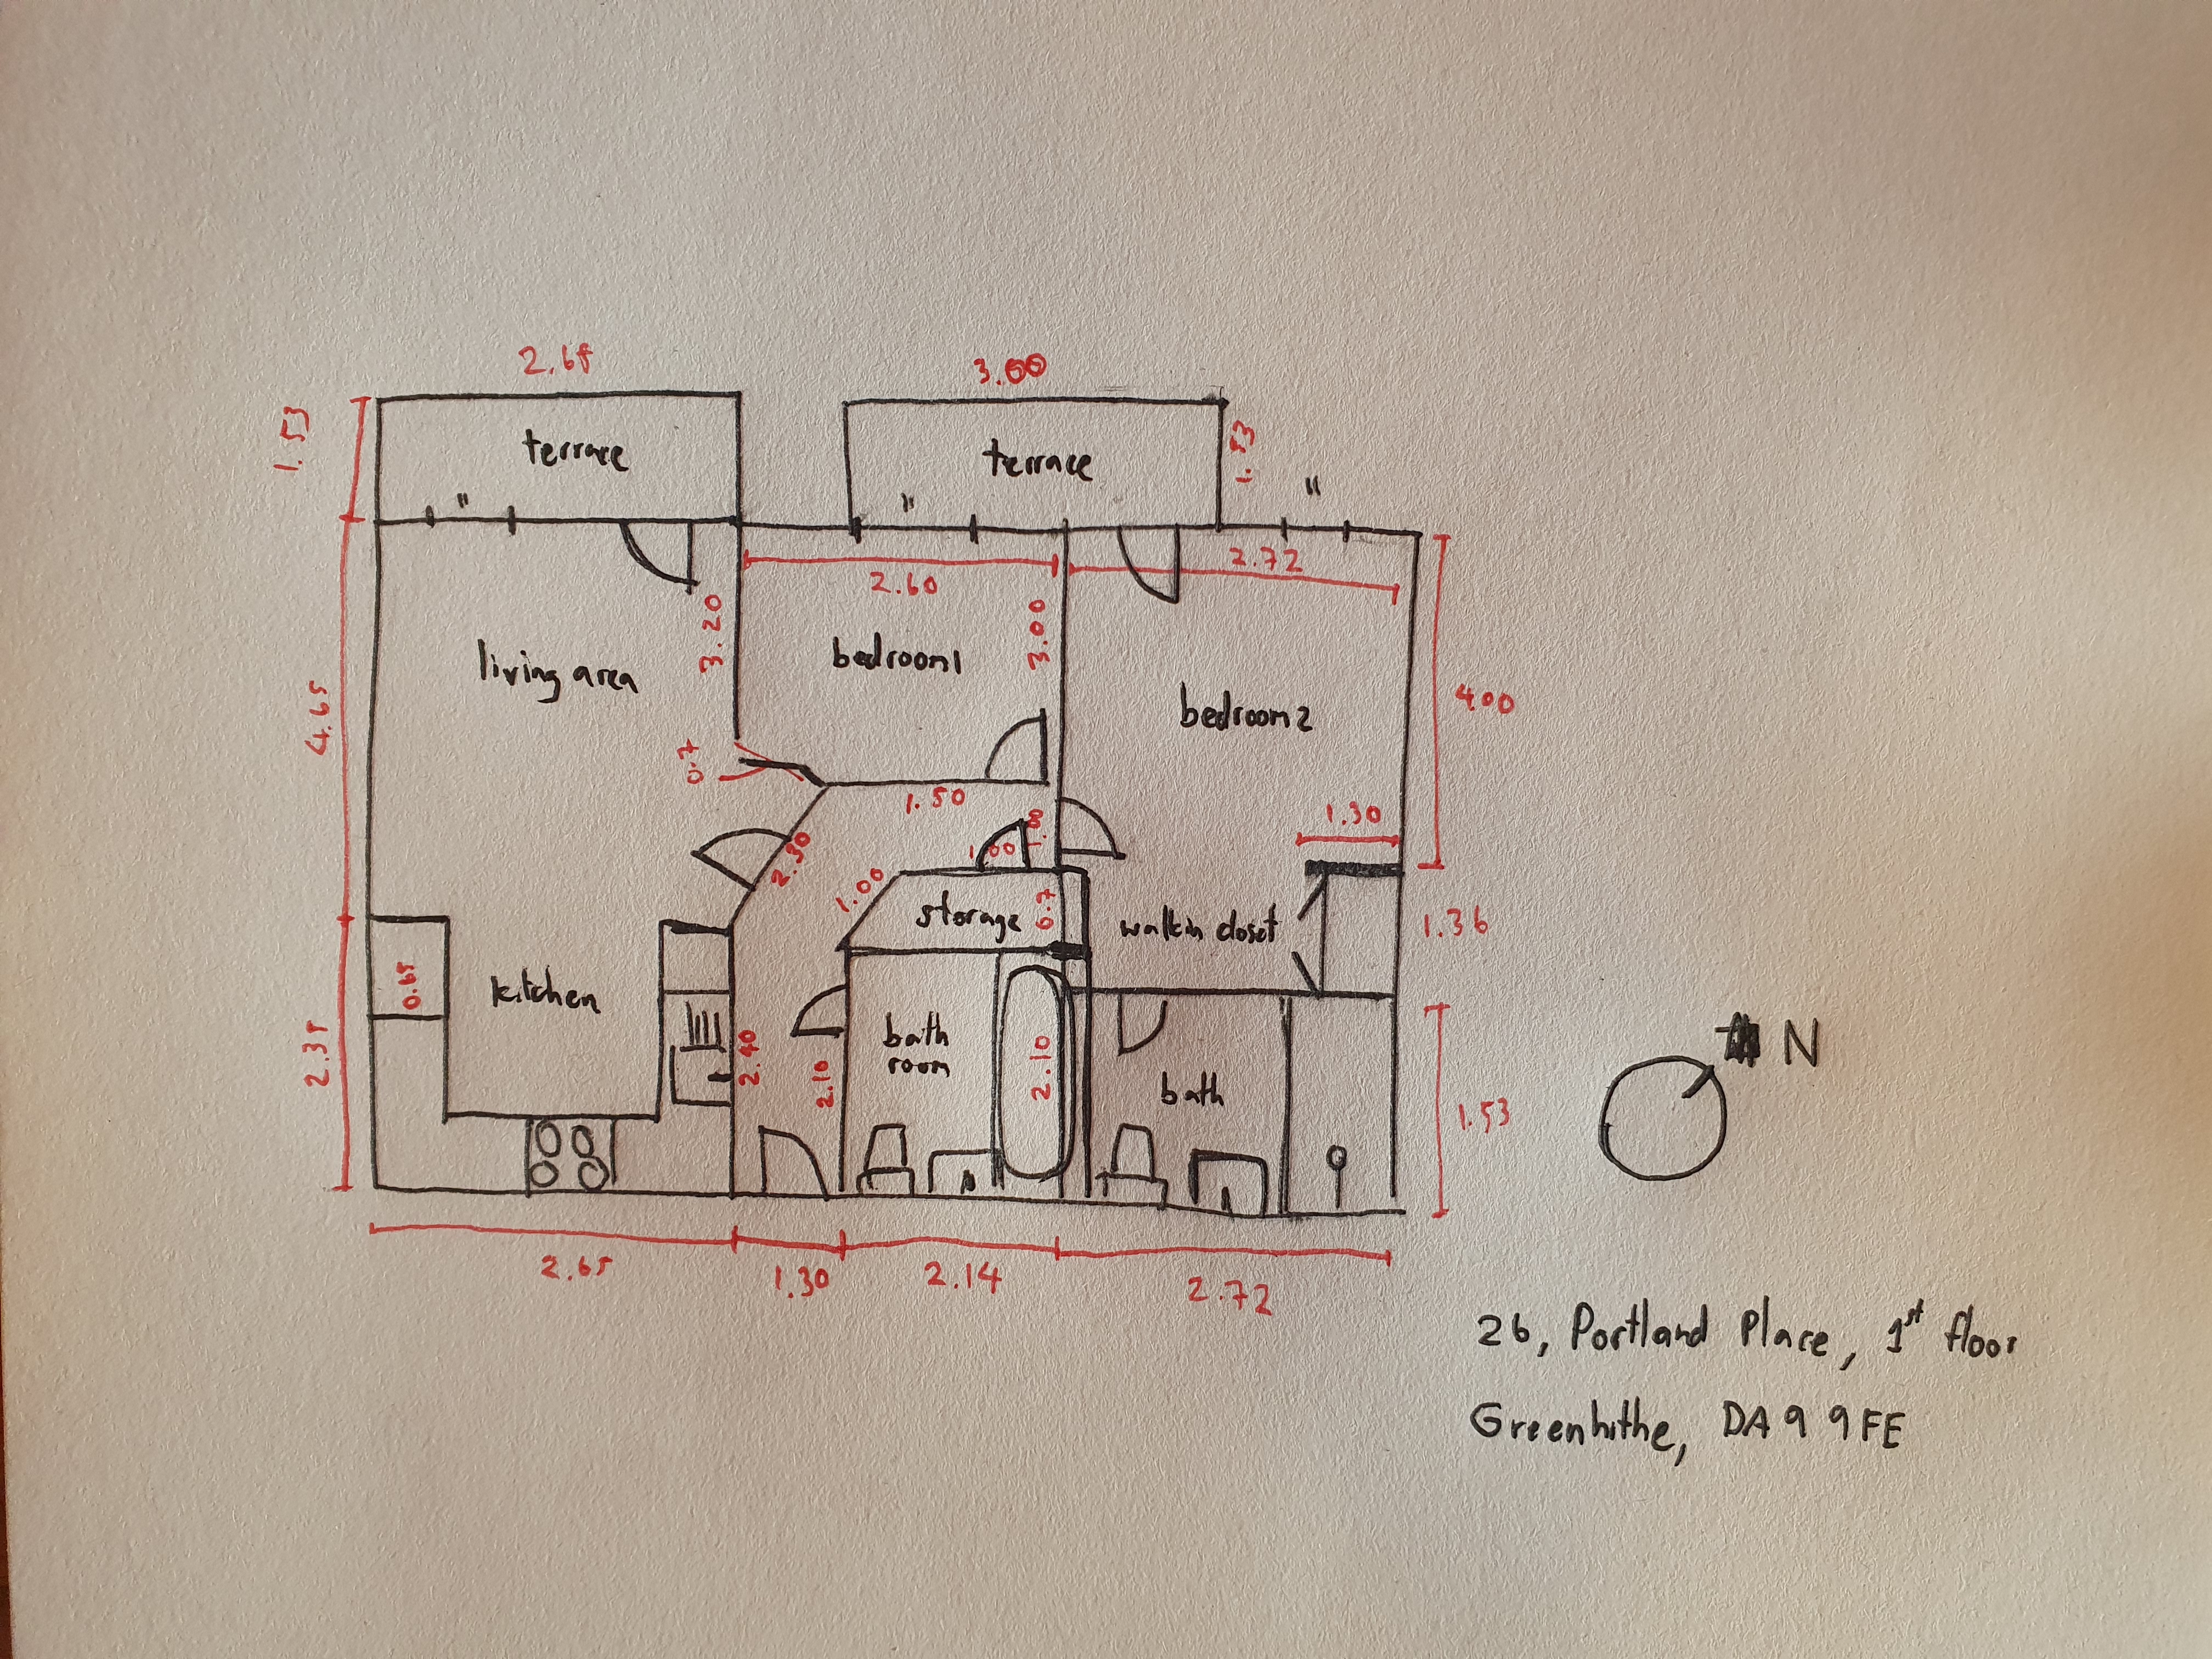 2.65
3.00
1.53
terrace
terrace
1.53
"
"
"
2.60
2.72
3.20
3.00
living area
bedroom1
bedroom2
4.65
4.00
0.7
1.50
1.00
1.30
2.30
1.00
1.00
storage
0.7
walkin closet
1.36
0.65
kitchen
bath
room
2.40
2.10
2.10
bath
2.35
1.53
N
2.65
1.30
2.14
2.72
26, Portland Place, 1st floor
Greenhithe, DA9 9FE